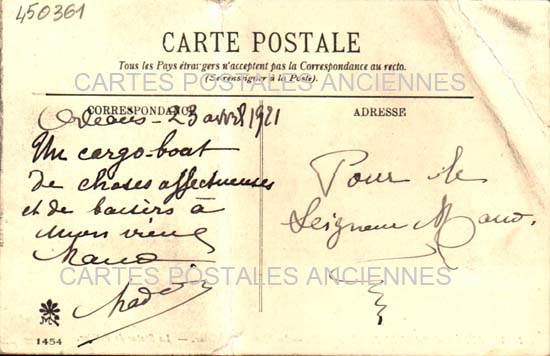 450361
CARTE POSTALE
Tous les Pays étrangers n'acceptent pas la Correspondance au recto.
(Se renseigner à la Poste).
CARTES POSTALES ANCIENNES
CORRESPONDANCE
ADRESSE
Orléans - 23 avril 1921
Un cargo-boat
de choses affectueuses
et de baisers à
mon vieux
Mano
Pour le
Seigneur Mano.
CARTES POSTALES ANCIENNES
1454